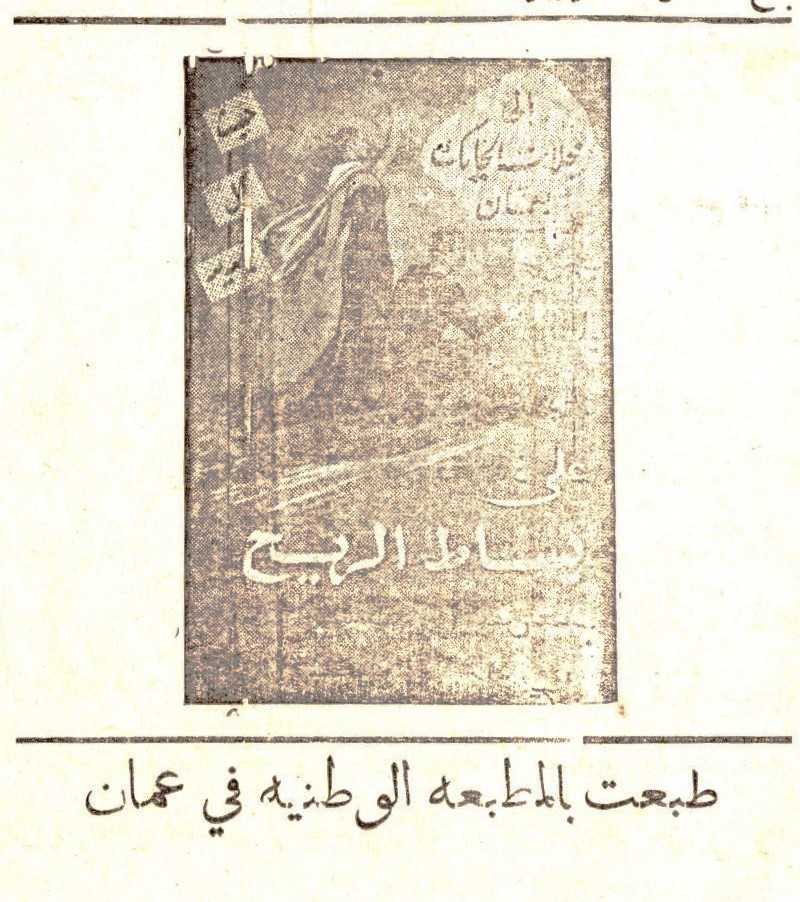 الى
محلات شنه الحايك
بعمان
على
بساط الريح
طبعت بالمطبعه الوطنيه في عمان